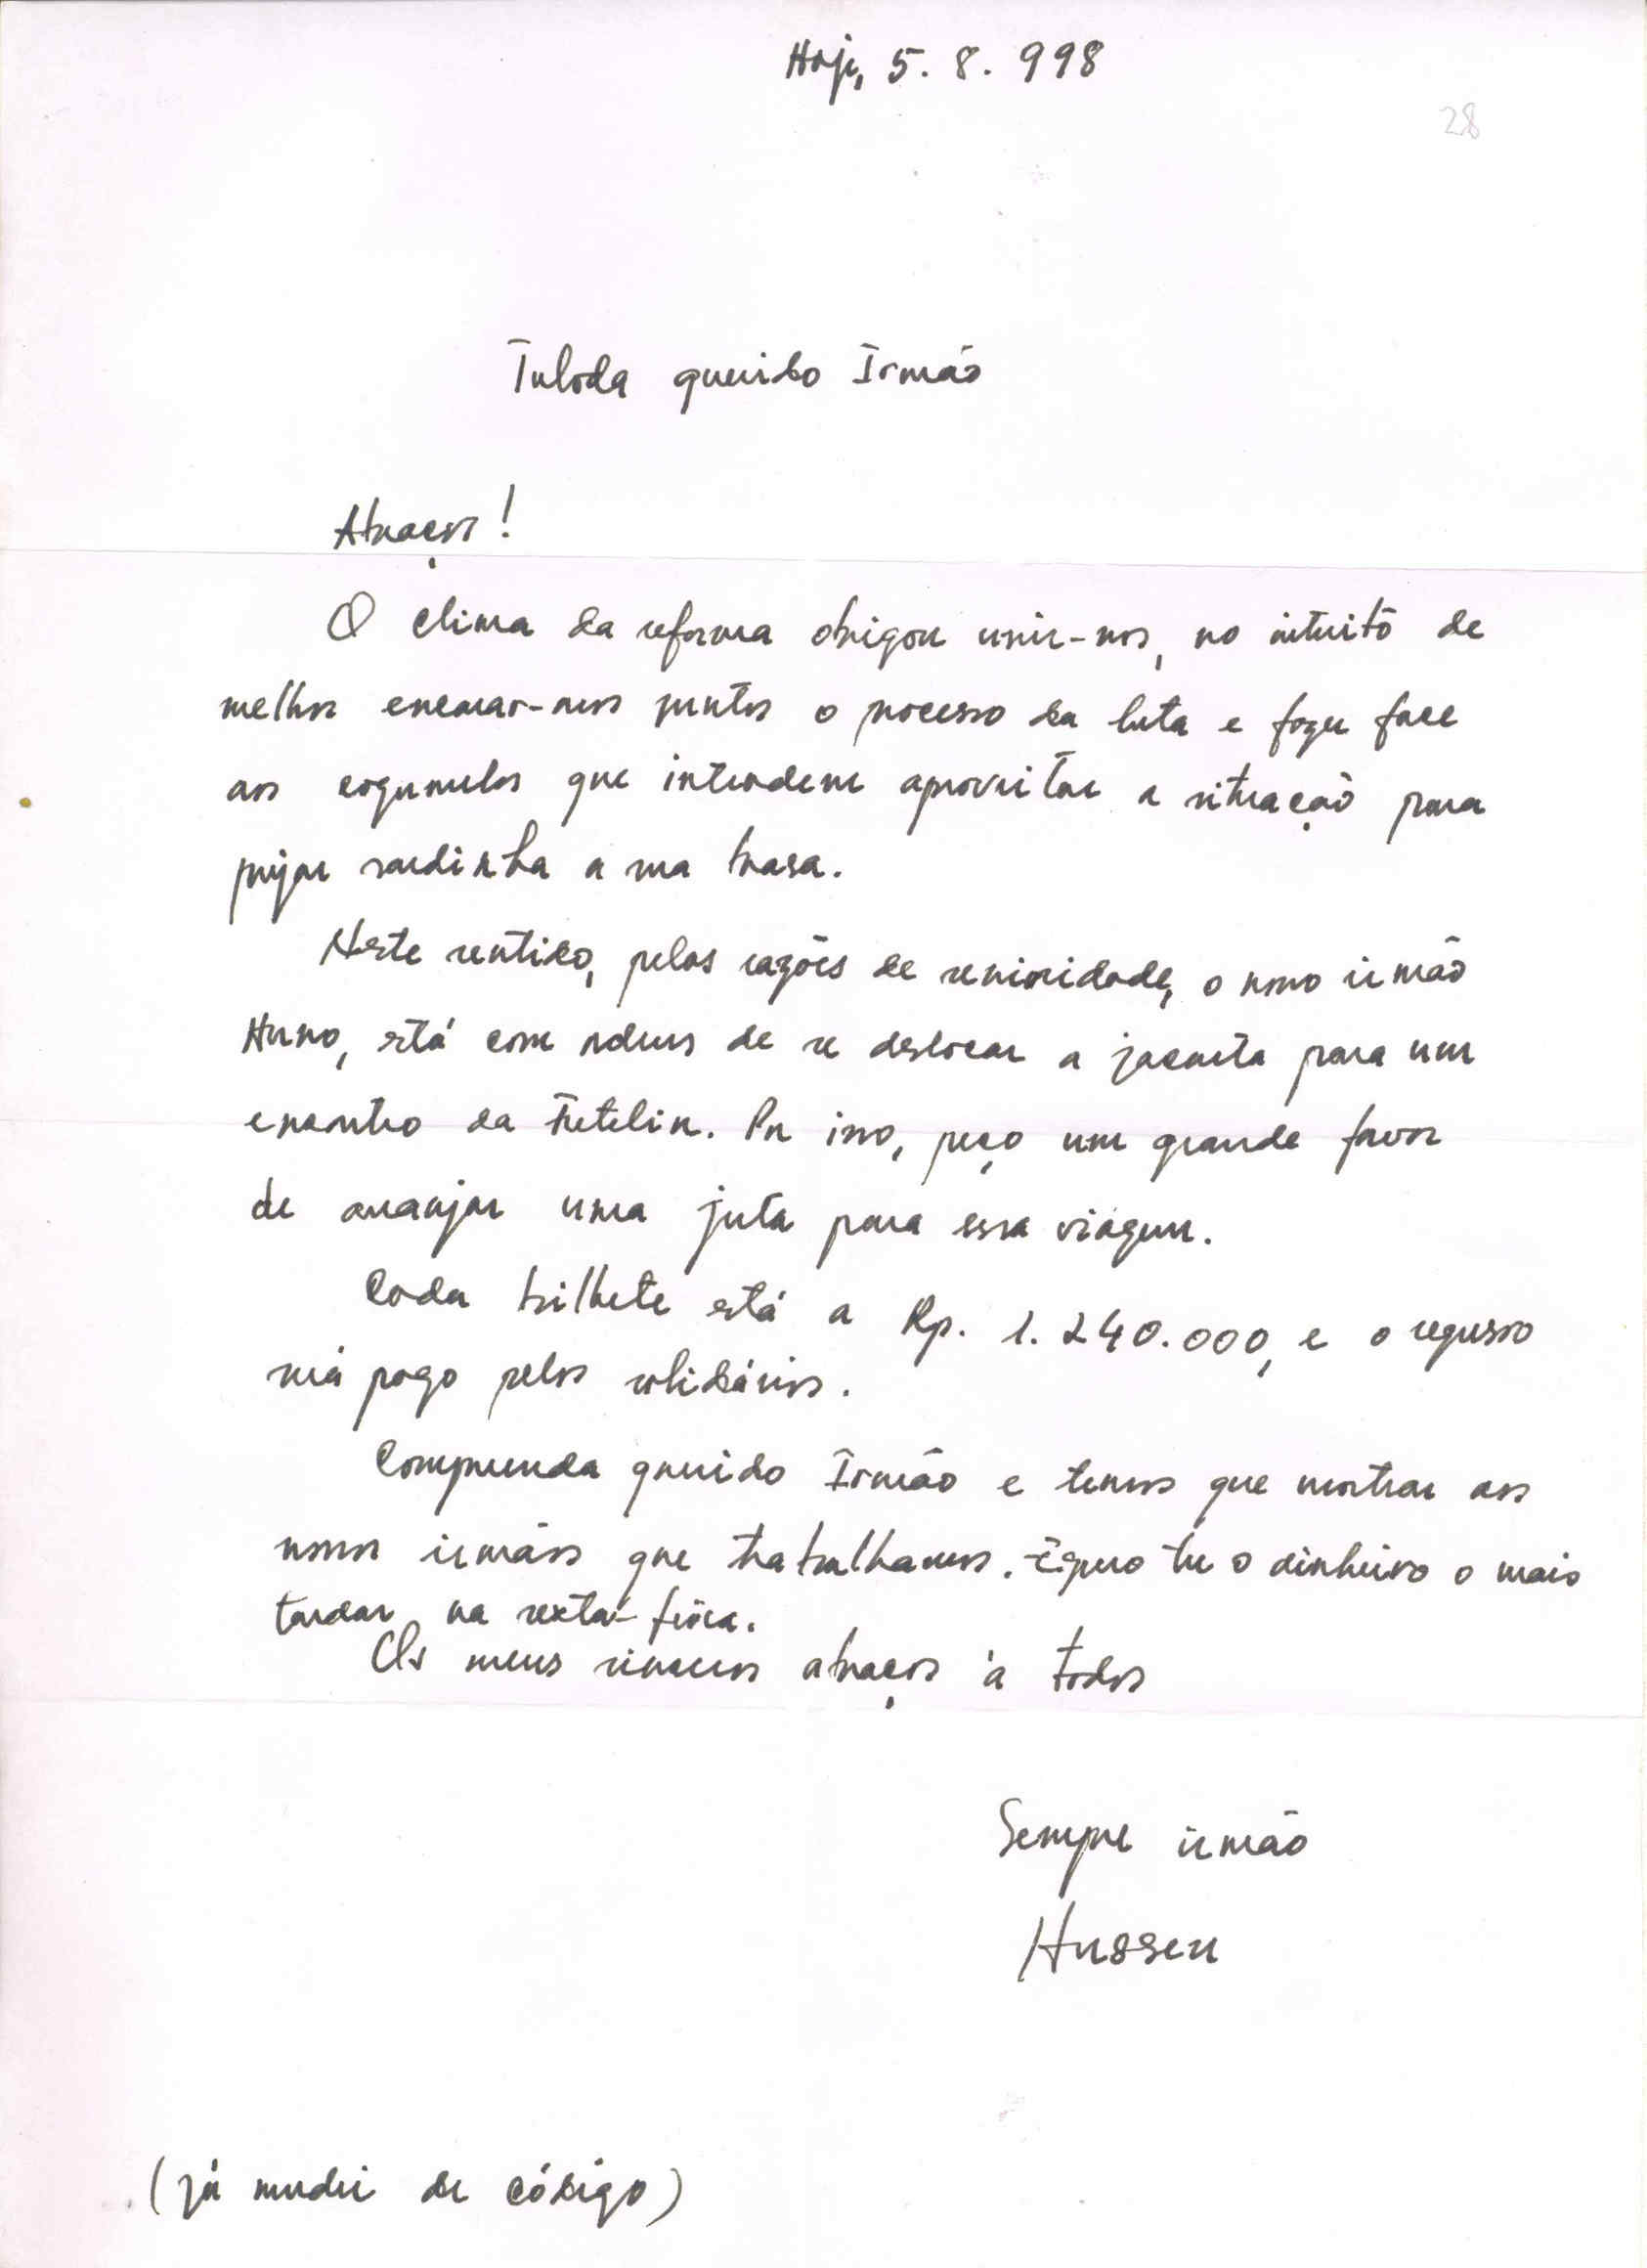 Hoje, 5. 8. 998
28
Tuloda querido Irmão
Abraços!
O clima da reforma obrigou unir-nos, no intuito de
melhor encarar-nos juntos o processo da luta e fazer face
aos cogumelos que intendem aproveitar a situação para
puxar sardinha a sua brasa.
Neste sentido, pelas razões de senioridade, o nosso irmão
Huno, está com ordens de se deslocar a jacarta para um
encontro da Fretelin. Por isso, peço um grande favor
de arranjar uma juta para essa viagem.
Cada bilhete está a Rp. 1.240.000, e o regresso
será pago pelos solidários.
Compreenda querido Irmão e temos que mostrar aos
nossos irmãos que trabalhamos. Espero ter o dinheiro o mais
tardar, na sexta-feira.
Os meus sinceros abraços à todos
Sempre irmão
Hussen
(já mudei de código)